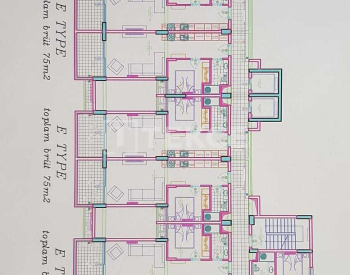 E TYPE
toplam brüt 75m2
E TYPE
toplam brüt 75m2
E TYPE
toplam b